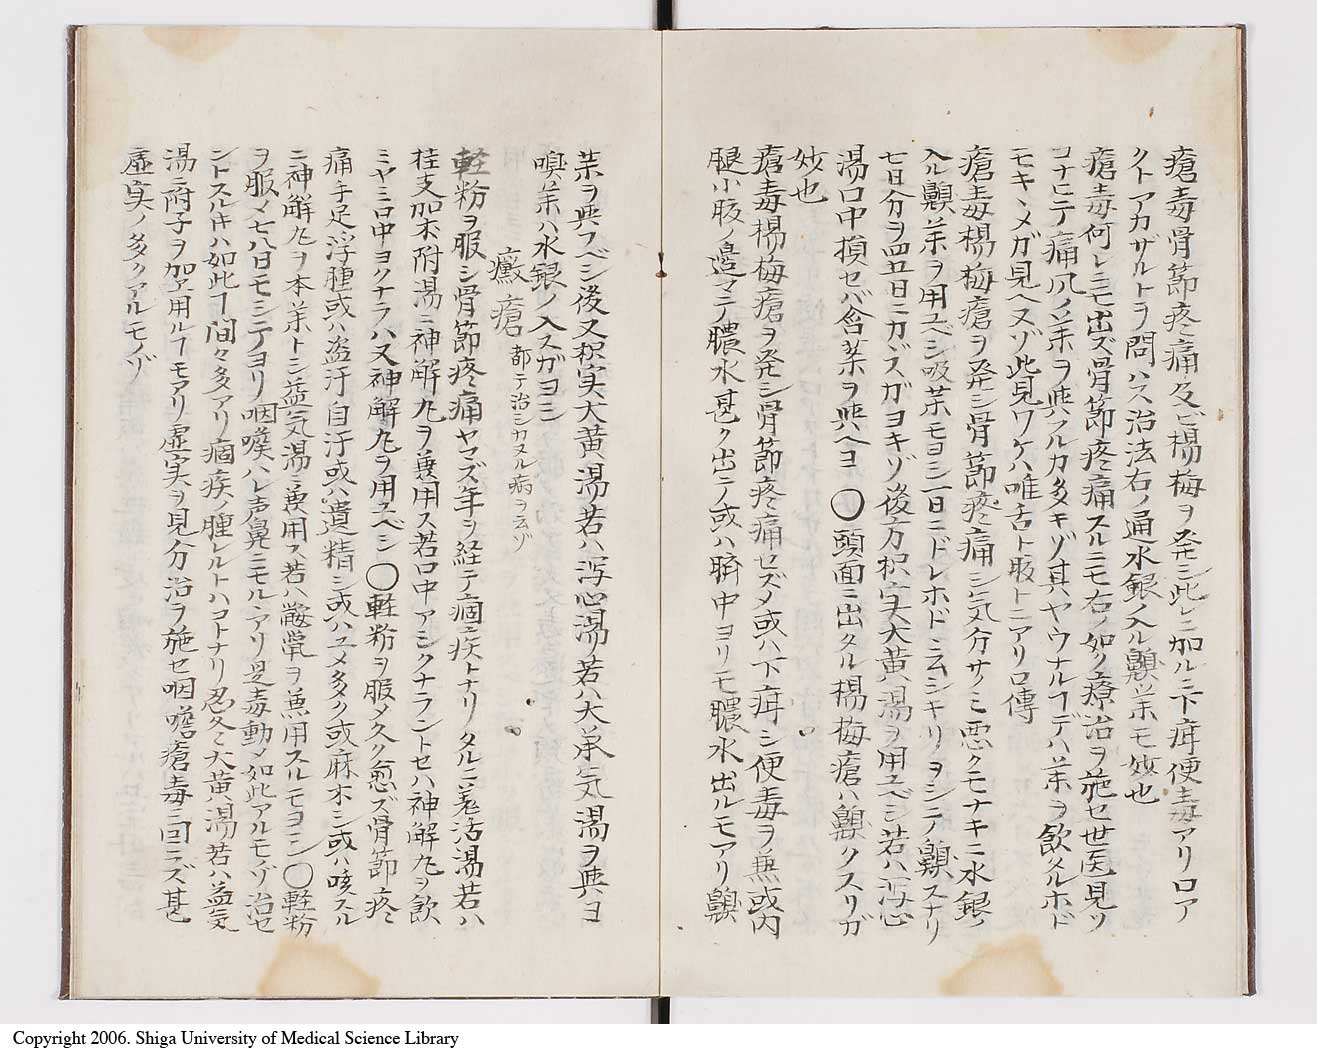 瘡毒骨節疼痛タビ楊梅ヲ発シ此レニ加ルニ下疳便毒アリロア
クトアカザルトヲ問ハス治法右ノ通水銀ノ入ル齅薬モ妙也
瘡毒何レニモ出ズ骨節疼痛スルニモ右ノ如ク療治ヲ施セ世医見ソ
コナヒテ痛風ノ薬ヲ與フルカ多キゾ其ヤウナルヿデハ薬ヲ飲タルホド
モキヽメガ見ヘヌゾ此見ワケハ唯舌ト腹トニアリ口傳
瘡毒楊梅瘡ヲ発シ骨節疼痛シ気分サノミ悪クモナキニ水銀ノ
入ル齅薬ヲ用ユベシ吸薬モヨシ一日ニドレホドニ云シキリヲシテ齅スナリ
七日分ヲ四五日ニカズスガヨキゾ後方枳実大黄湯ヲ用ユベシ若ハ瀉心
湯口中損セバ含薬ヲ與ヘヨ〇頭面ニ出タル楊梅瘡ハ齅クスリガ
妙也
瘡毒楊梅瘡ヲ発シ骨節疼痛セズメ或ハ下疳シ便毒ヲ無或内
腿小腹ノ邉マテ膿水甚ク出テノ或ハ臍中ヨリモ膿水出ルモアリ齅
薬ヲ與フベシ後又枳実大黄湯若ハ瀉心湯若ハ大承気湯ヲ與ヨ
嗅薬ハ水銀ノ入スガヨシ
癜瘡 都テ治シカヌル病ヲ云ゾ
軽粉ヲ服シ骨節疼痛ヤマズ年ヲ経テ痼疾トナリタルニ羗活湯若ハ
桂支加朮附湯ニ神解丸ヲ兼用ス若口中アシクナラントセハ神解丸ヲ飲
ミヤミ口中ヨクナラハ又神解丸ヲ用ユベシ〇軽粉ヲ服メ久ク愈ズ骨節疼
痛手足浮腫或ハ盗汗自汗或ハ遺精シ或ハユメ多ク或麻木シ或ハ咳スル
ニ神解丸ヲ本薬トシ益気湯ニ兼用ス若ハ鼈甞ヲ兼用スルモヨシ〇軽粉
ヲ服メ七八日モシテヨリ咽喉ハレ声鼻ニモルヽアリ是毒動メ如此アルモノゾ治セ
ントスル𪜈ハ如此ヿ間々多アリ痼疾ノ腫レルトハコトナリ忍冬大黄湯若ハ益気
湯ニ附子ヲ加ヱ用ルヿモアリ虚実ヲ見分治ヲ施セ咽嗌瘡毒ニ回ニズ甚
虚実ノ多クアルモノゾ
Copyright 2006. Shiga University of Medical Science Library